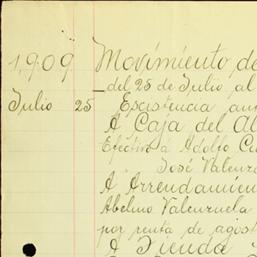 1,909 Movimiento de
del 25 de Julio al
Julio 25 Escistencia an
A Caja del Al
Efectivo á Adolfo
José Valenz
A Arrendamien
Abelino Valenzuela
por renta de agost
A Tienda